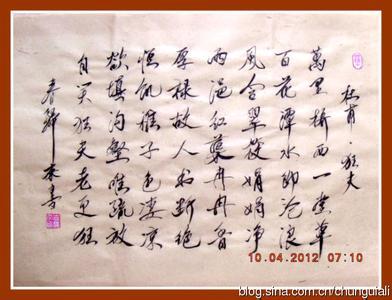 杜甫·狂夫
萬里桥西一堂草
百花潭水即沧浪
風含翠筱娟娟净
雨浥红蕖冉冉香
厚禄故人书断绝
恒饥稚子色凄凉
欲填沟壑唯疏放
自笑狂夫老更狂
10.04.2012 07:10
blog.sina.com.cn/chunguiali